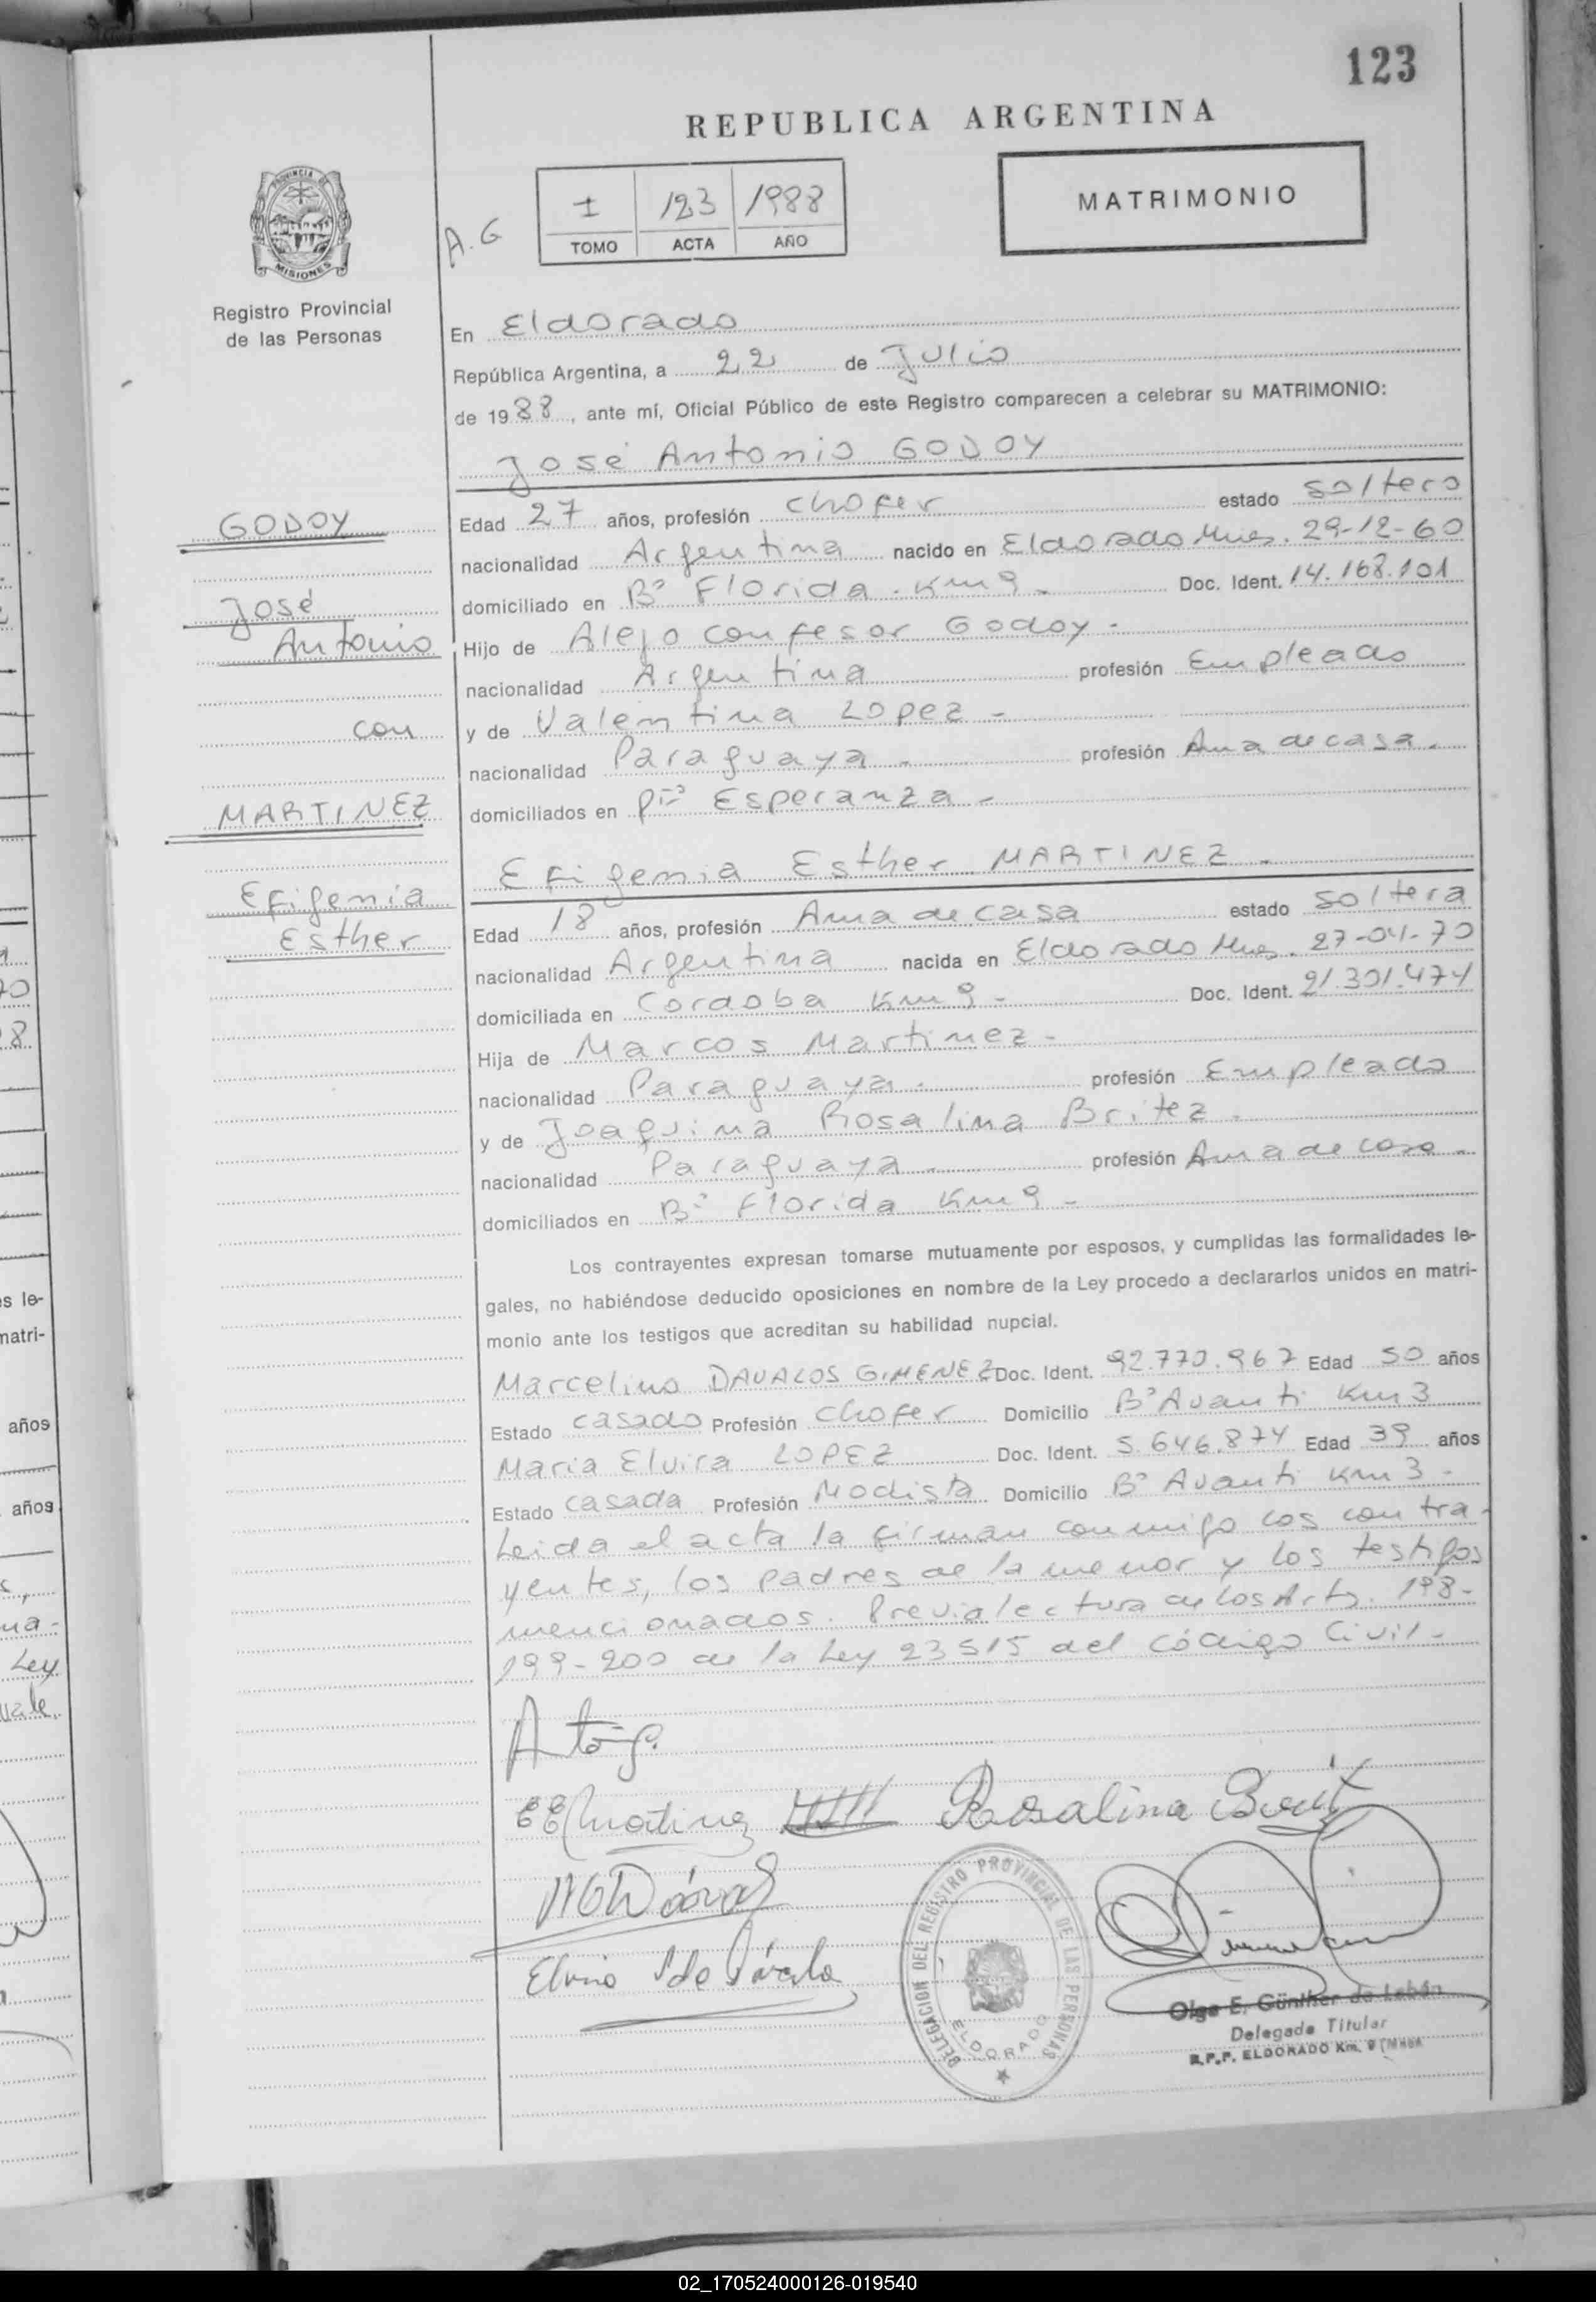 123
REPUBLICA ARGENTINA
PROVINCIA DE
MISIONES
Registro Provincial
de las Personas
A.G
1 123 1988
TOMO ACTA AÑO
MATRIMONIO
En Eldorado
República Argentina, a 22 de Julio
de 1988, ante mí, Oficial Público de este Registro comparecen a celebrar su MATRIMONIO:
José Antonio GODOY
GODOY
José
Antonio
con
MARTINEZ
Efigenia
Esther
Edad 27 años, profesión chofer estado soltero
nacionalidad Argentina nacido en Eldorado Mnes. 29-12-60
domiciliado en Bº Florida - Km 9 - Doc. Ident. 14.168.101
Hijo de Alejo confesor Godoy -
nacionalidad Argentina profesión Empleado
y de Valentina Lopez -
nacionalidad Paraguaya - profesión Ama de casa -
domiciliados en Pto Esperanza -
Efigenia Esther MARTINEZ -
Edad 18 años, profesión Ama de casa estado soltera
nacionalidad Argentina nacida en Eldorado Mnes. 27-04-70
domiciliada en Cordoba Km 9 - Doc. Ident. 21.301.474
Hija de Marcos Martinez -
nacionalidad Paraguaya - profesión Empleado
y de Joaquina Rosalina Britez -
nacionalidad Paraguaya - profesión Ama de casa -
domiciliados en Bº Florida Km 9 -
Los contrayentes expresan tomarse mutuamente por esposos, y cumplidas las formalidades le-
gales, no habiéndose deducido oposiciones en nombre de la Ley procedo a declararlos unidos en matri-
monio ante los testigos que acreditan su habilidad nupcial.
Marcelino DAVALOS GIMENEZ Doc. Ident. 92.770.967 Edad 50 años
Estado casado Profesión chofer Domicilio Bº Avanti Km 3
Maria Elvira LOPEZ Doc. Ident. 5.646.874 Edad 39 años
Estado casada Profesión Modista Domicilio Bº Avanti Km 3 -
Leida el acta la firman conmigo los contra-
yentes, los padres de la menor y los testigos
mencionados. Previa lectura de los Arts. 198-
199-200 de la Ley 23515 del código Civil -
EEMartinez Rosalina Brit
DELEGACION DEL REGISTRO PROVINCIAL DE LAS PERSONAS
ELDORADO
Olga E. Günther de Lebán
Delegada Titular
R.P.P. ELDORADO Km. 9
es le-
matri-
años
años
Ley
02_170524000126-019540